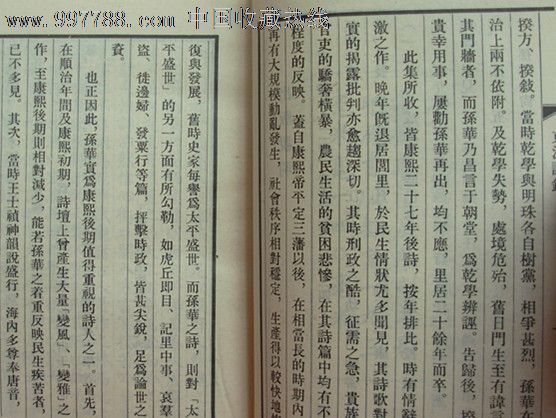 www.997788.com 中国收藏热线
揆方、揆敘。當時乾學與明珠各自樹黨，相爭甚烈，孫華在
治上兩不依附。及乾學失勢，處境危殆，舊日門生至有諱言
其門牆者，而孫華乃昌言于朝堂，爲乾學辨誣。告歸後，揆
貴幸用事，屢勸孫華再出，均不應，里居二十餘年而卒。
此集所收，皆康熙二十七年後詩，按年排比。時有情辭
激之作。晚年旣退居閭里，於民生情狀尤多聞見，其詩歌對
實的揭露批判亦愈趨深切。其時刑政之酷，征需之急，貴族
官吏的驕奢橫暴，農民生活的貧困悲慘，在其詩篇中均有不
程度的反映。蓋自康熙帝平定三藩以後，在相當長的時期內
再有大規模動亂發生，社會秩序相對穩定，生產得以較快地
復與發展，舊時史家每譽爲太平盛世。而孫華之詩，則對「太
平盛世」的另一方面有所勾勒，如虎丘即目、記里中事、哀羣
盜、徙邊婦、發粟行等篇，抨擊時政，皆甚尖銳，足爲論世之
資。
也正因此，孫華實爲康熙後期值得重視的詩人之一。首先，
在順治年間及康熙初期，詩壇上曾產生大量「變風」、「變雅」之
作，至康熙後期則相對減少，能若孫華之着重反映民生疾苦者，
已不多見。其次，當時王士禎神韻說盛行，海內多尊奉唐音，